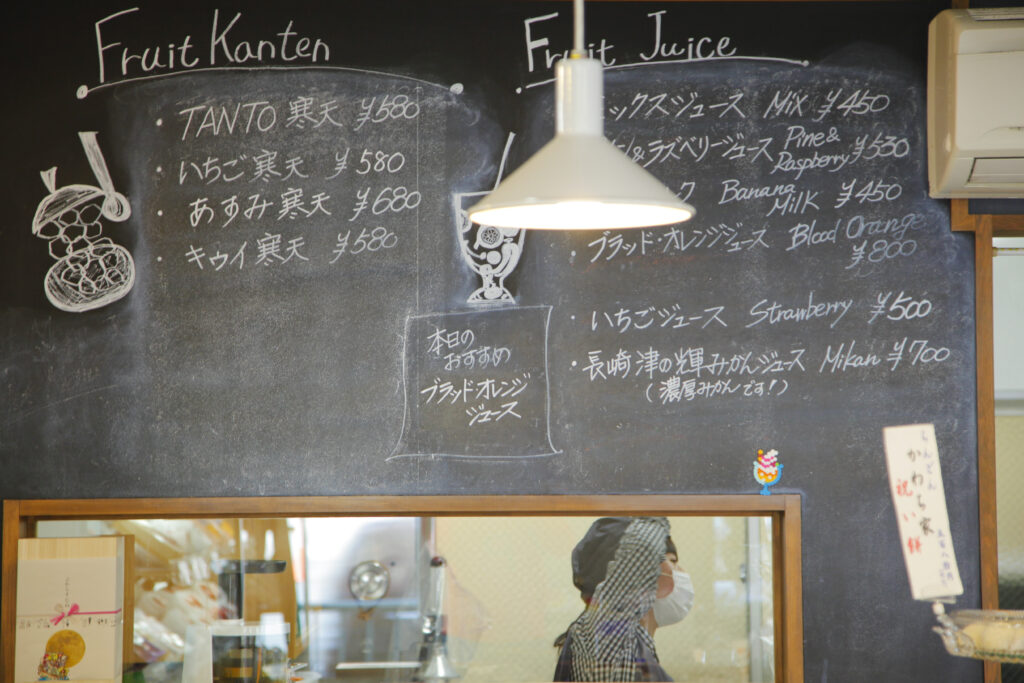 Fruit Kanten
・TANTO 寒天 ¥580
・いちご寒天 ¥580
・あすみ寒天 ¥680
・キウイ寒天 ¥580
Fruit Juice
ックスジュース Mix ¥450
&ラズベリージュース Pine& Raspberry ¥530
ク Banana Milk ¥450
・ブラッド・オレンジジュース Blood Orange ¥800
・いちごジュース Strawberry ¥500
・長崎津の輝みかんジュース Mikan ¥700
(濃厚みかんです!)
本日の
おすすめ
ブラッド・オレンジ
ジュース
かわち家
祝い餅